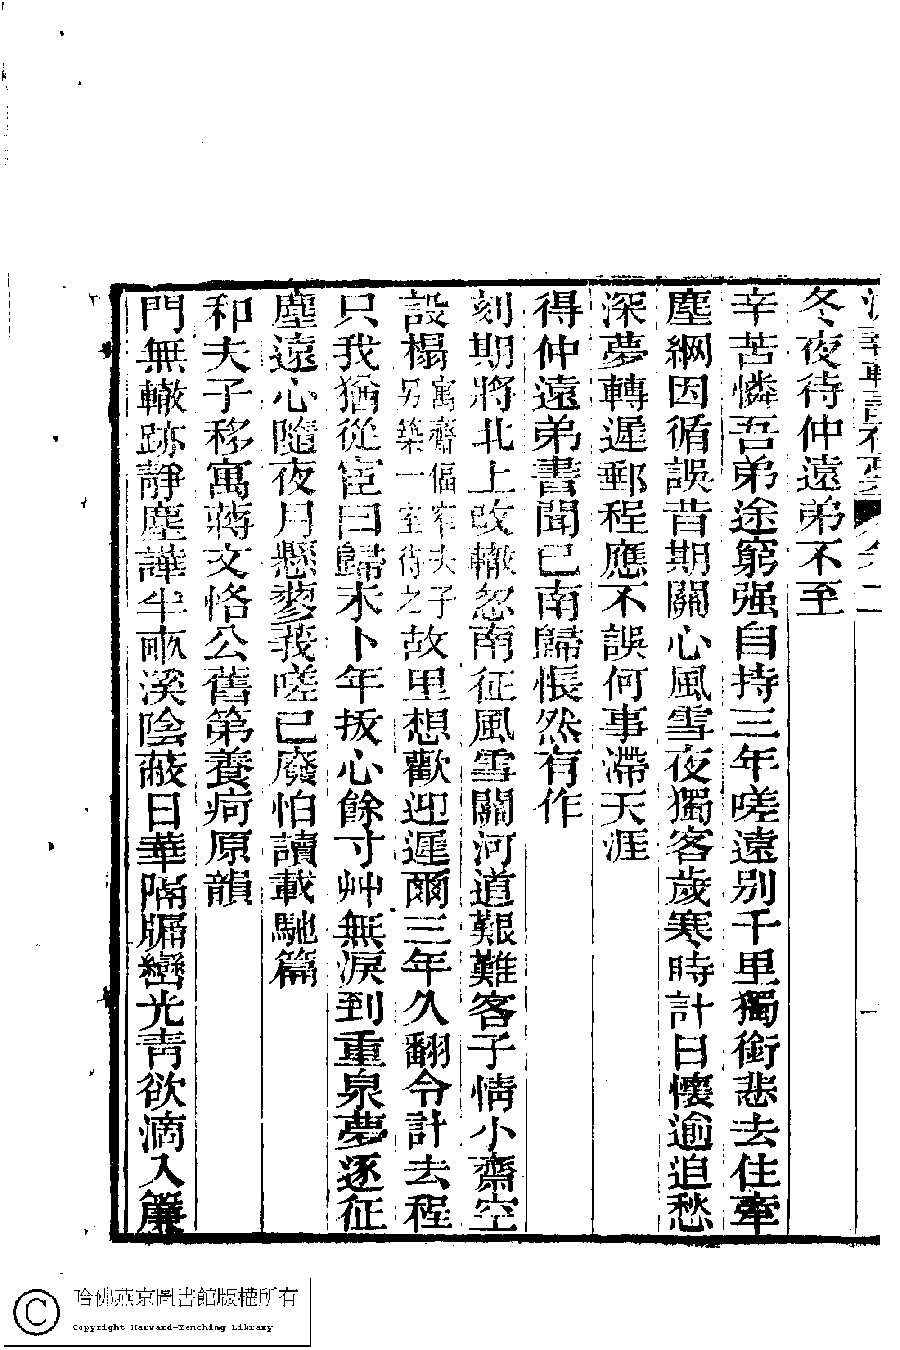 冬夜待仲遠弟不至
辛苦憐吾弟途窮强自持三年嗟遠別千里獨銜悲去住牽
塵網因循誤昔期關心風雪夜獨客歲寒時計日懷逾迫愁
深夢轉遲郵程應不誤何事滯天涯
得仲遠弟書聞已南歸悵然有作
刻期將北上改轍忽南征風雪關河道艱難客子情小齋空
設榻寓齋偪窄夫子另築一室待之故里想歡迎遲爾三年久翻令計去程
只我猶從宦曰歸未卜年拔心餘寸艸無淚到重泉夢逐征
塵遠心隨夜月懸蓼莪嗟已廢怕讀載馳篇
和夫子移寓蔣文恪公舊第養疴原韻
門無轍跡靜塵譁半畝溪陰蔽日華隔牖巒光青欲滴入簾
哈佛燕京圖書館版權所有
Copyright Harvard-Yenching Library